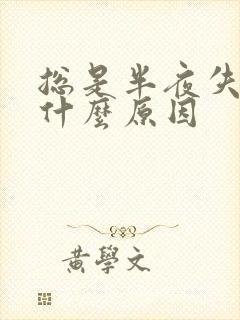 總是半夜失
什麼原因
黃學文